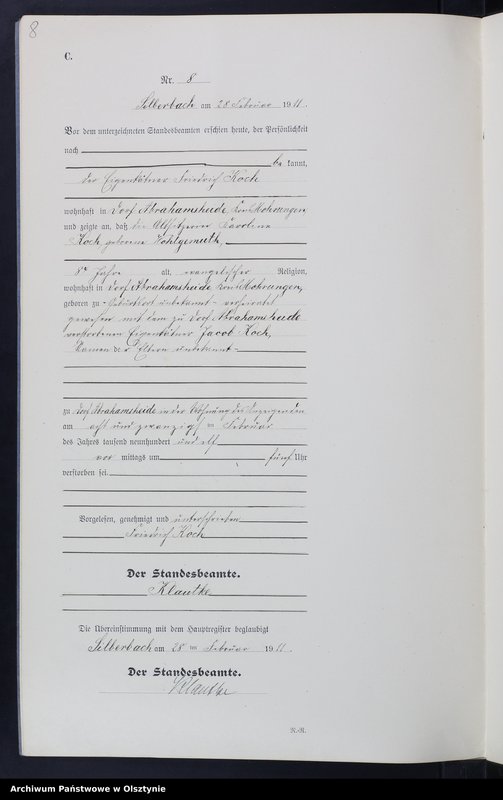 8
C.
Nr. 8
Silberbach am 28 Februar 1911.
Vor dem unterzeichneten Standesbeamten erschien heute, der Persönlichkeit
nach
be kannt,
der Eigenkätner Friedrich Koch
wohnhaft in Dorf Abrahamsheide Kreis Mohrungen,
und zeigte an, daß die Altsitzerin Karoline
Koch geborene Wohlgemuth,
Jahre alt, evangelischer Religion,
wohnhaft in Dorf Abrahamsheide Kreis Mohrungen,
geboren zu - Geburtsort unbekannt - verheiratet
gewesen mit dem zu Dorf Abrahamsheide
verstorbenen Eigenkätner Jacob Koch,
Namen der Eltern unbekannt -
zu Dorf Abrahamsheide in der Wohnung des Anzeigenden
am acht und zwanzigsten Februar
des Jahres tausend neunhundert und elf
vor mittags um fünf Uhr
verstorben sei.
Vorgelesen, genehmigt und unterschrieben
Friedrich Koch
Der Standesbeamte.
Klautke
Die Übereinstimmung mit dem Hauptregister beglaubigt
Silberbach am 28 ten Februar 1911.
Der Standesbeamte.
Klautke
R.-R.
Archiwum Państwowe w Olsztynie